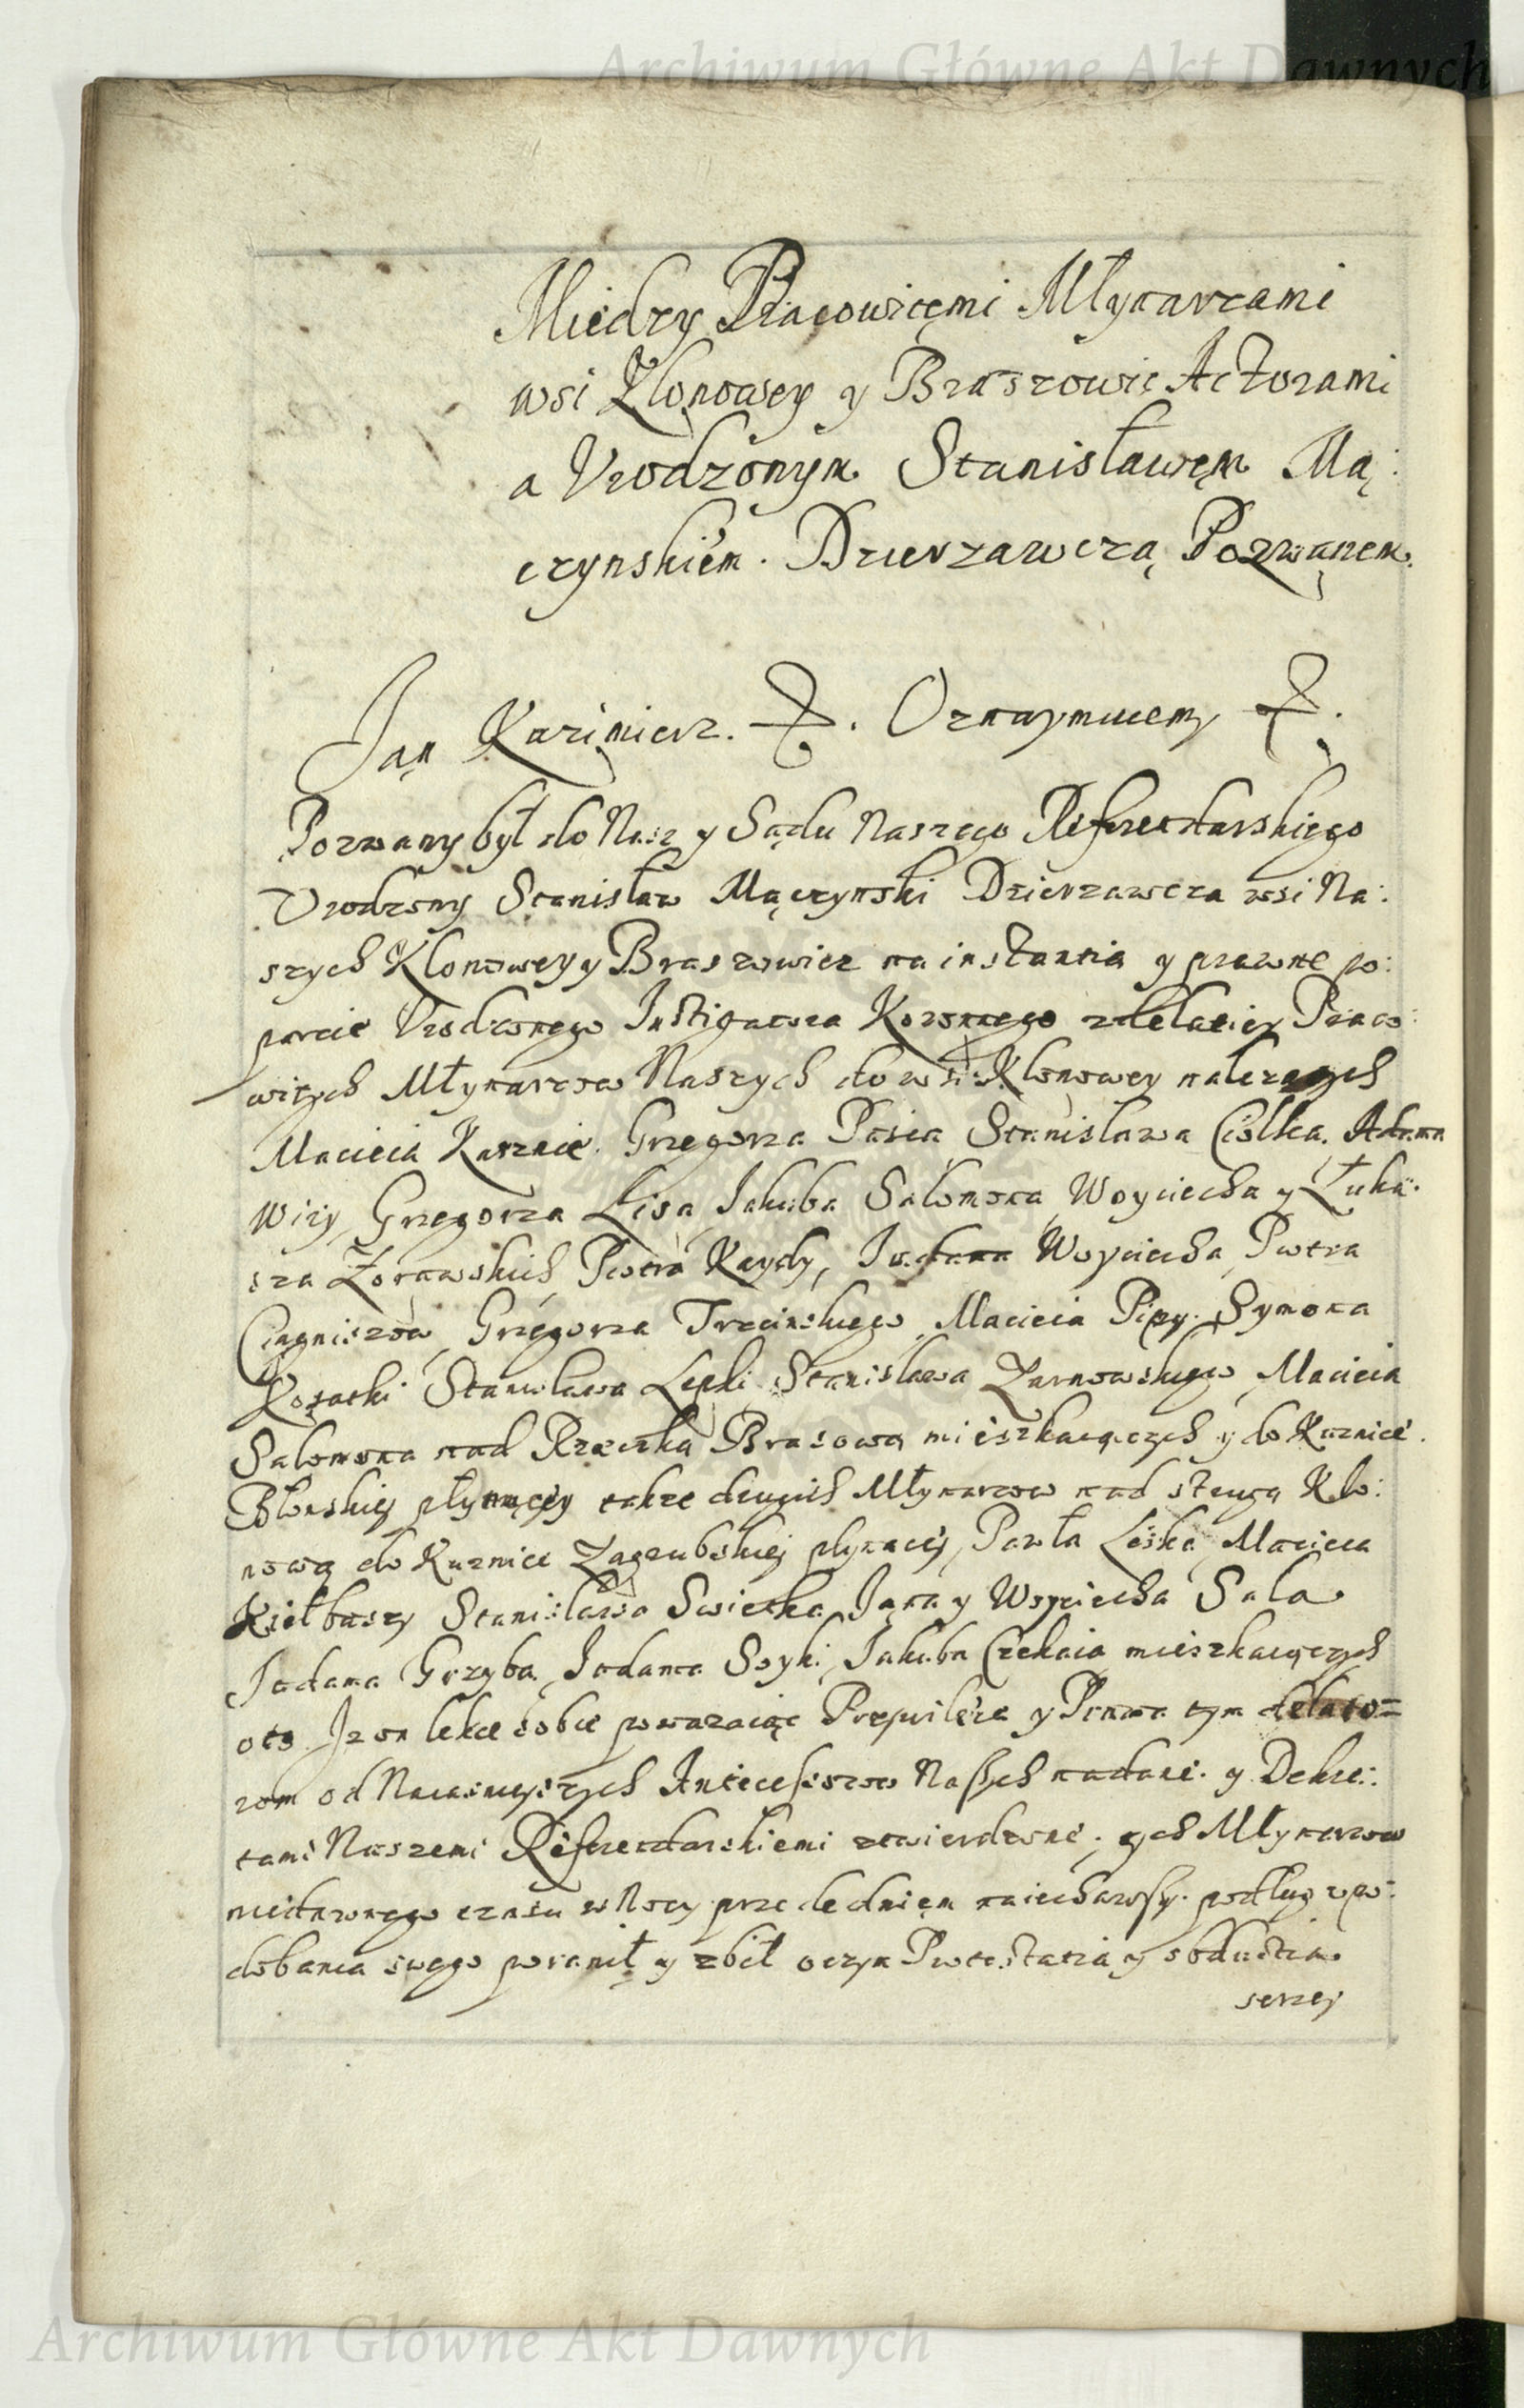 Archiwum Główne Akt Dawnych
Miedzy Pracowitęmi Młynarzami
wsi Klonowey y Braszowic Actorami
a Vrodzonym Stanisławęm Mą:
czynskiem. Dzierzawczą Pozwąnem.
Ian Kazimierz. &. Oznaymuiemy &.
Pozwany był do Nasz y Sądu Naszego Referendarskiego
Vrodzony Stanisław Mączynski Dzierzawcza wsi Na:
szych Klonowey y Braszowicz na instantią y prawne po:
parcie Vrodzonego Instigatora Koronnego z delatiey Praco:
witych Młynarzow Naszych do wsi Klonowey nalezących
Macieia Kuznie. Grzegorza Pasia Stanisława Ciołka. Adama
Wizy, Grzegorza Lisa, Iakuba Salomona, Woyciecha y Łuka:
sza Zorawskich, Piotra Kaydy, Iadama Woyciecha, Piotra
Ciągniszow, Grzegorza Trzcinskiego, Macieia Pipy. Symona
Kosatki Stanisława Lepki Stanisława Zarnowskiego, Macieia
Salomona nad Rzeczką Brasową mieszkaiączych y do Kuznice.
Płynącey takze drugich Młynarzow nad strugą Klo:
nową do Kuznice Zagrubskiej płynącej, Pawła Leska, Macieia
Kiełbaszy Stanisława Swietka, Iana y Woyciecha Sala
Iadama Grzyba, Iadama Soyki, Iakuba Czekaia mieszkaiączych
oto Iz on lekce sobie powazaiąc Przywileie y Prawa tym delato=
rom od Naiasnieyszych Antecessorow Naszych nadane. y Dekre:
tami Naszemi Referendarskiemi stwierdzone, tych Młynarzow
niedawnego czasu w Nocy prze de dniem naiechawszy. podług upo:
dobania swego poranił y zbił o czym Protestatia y obductia
serzej
Archiwum Główne Akt Dawnych